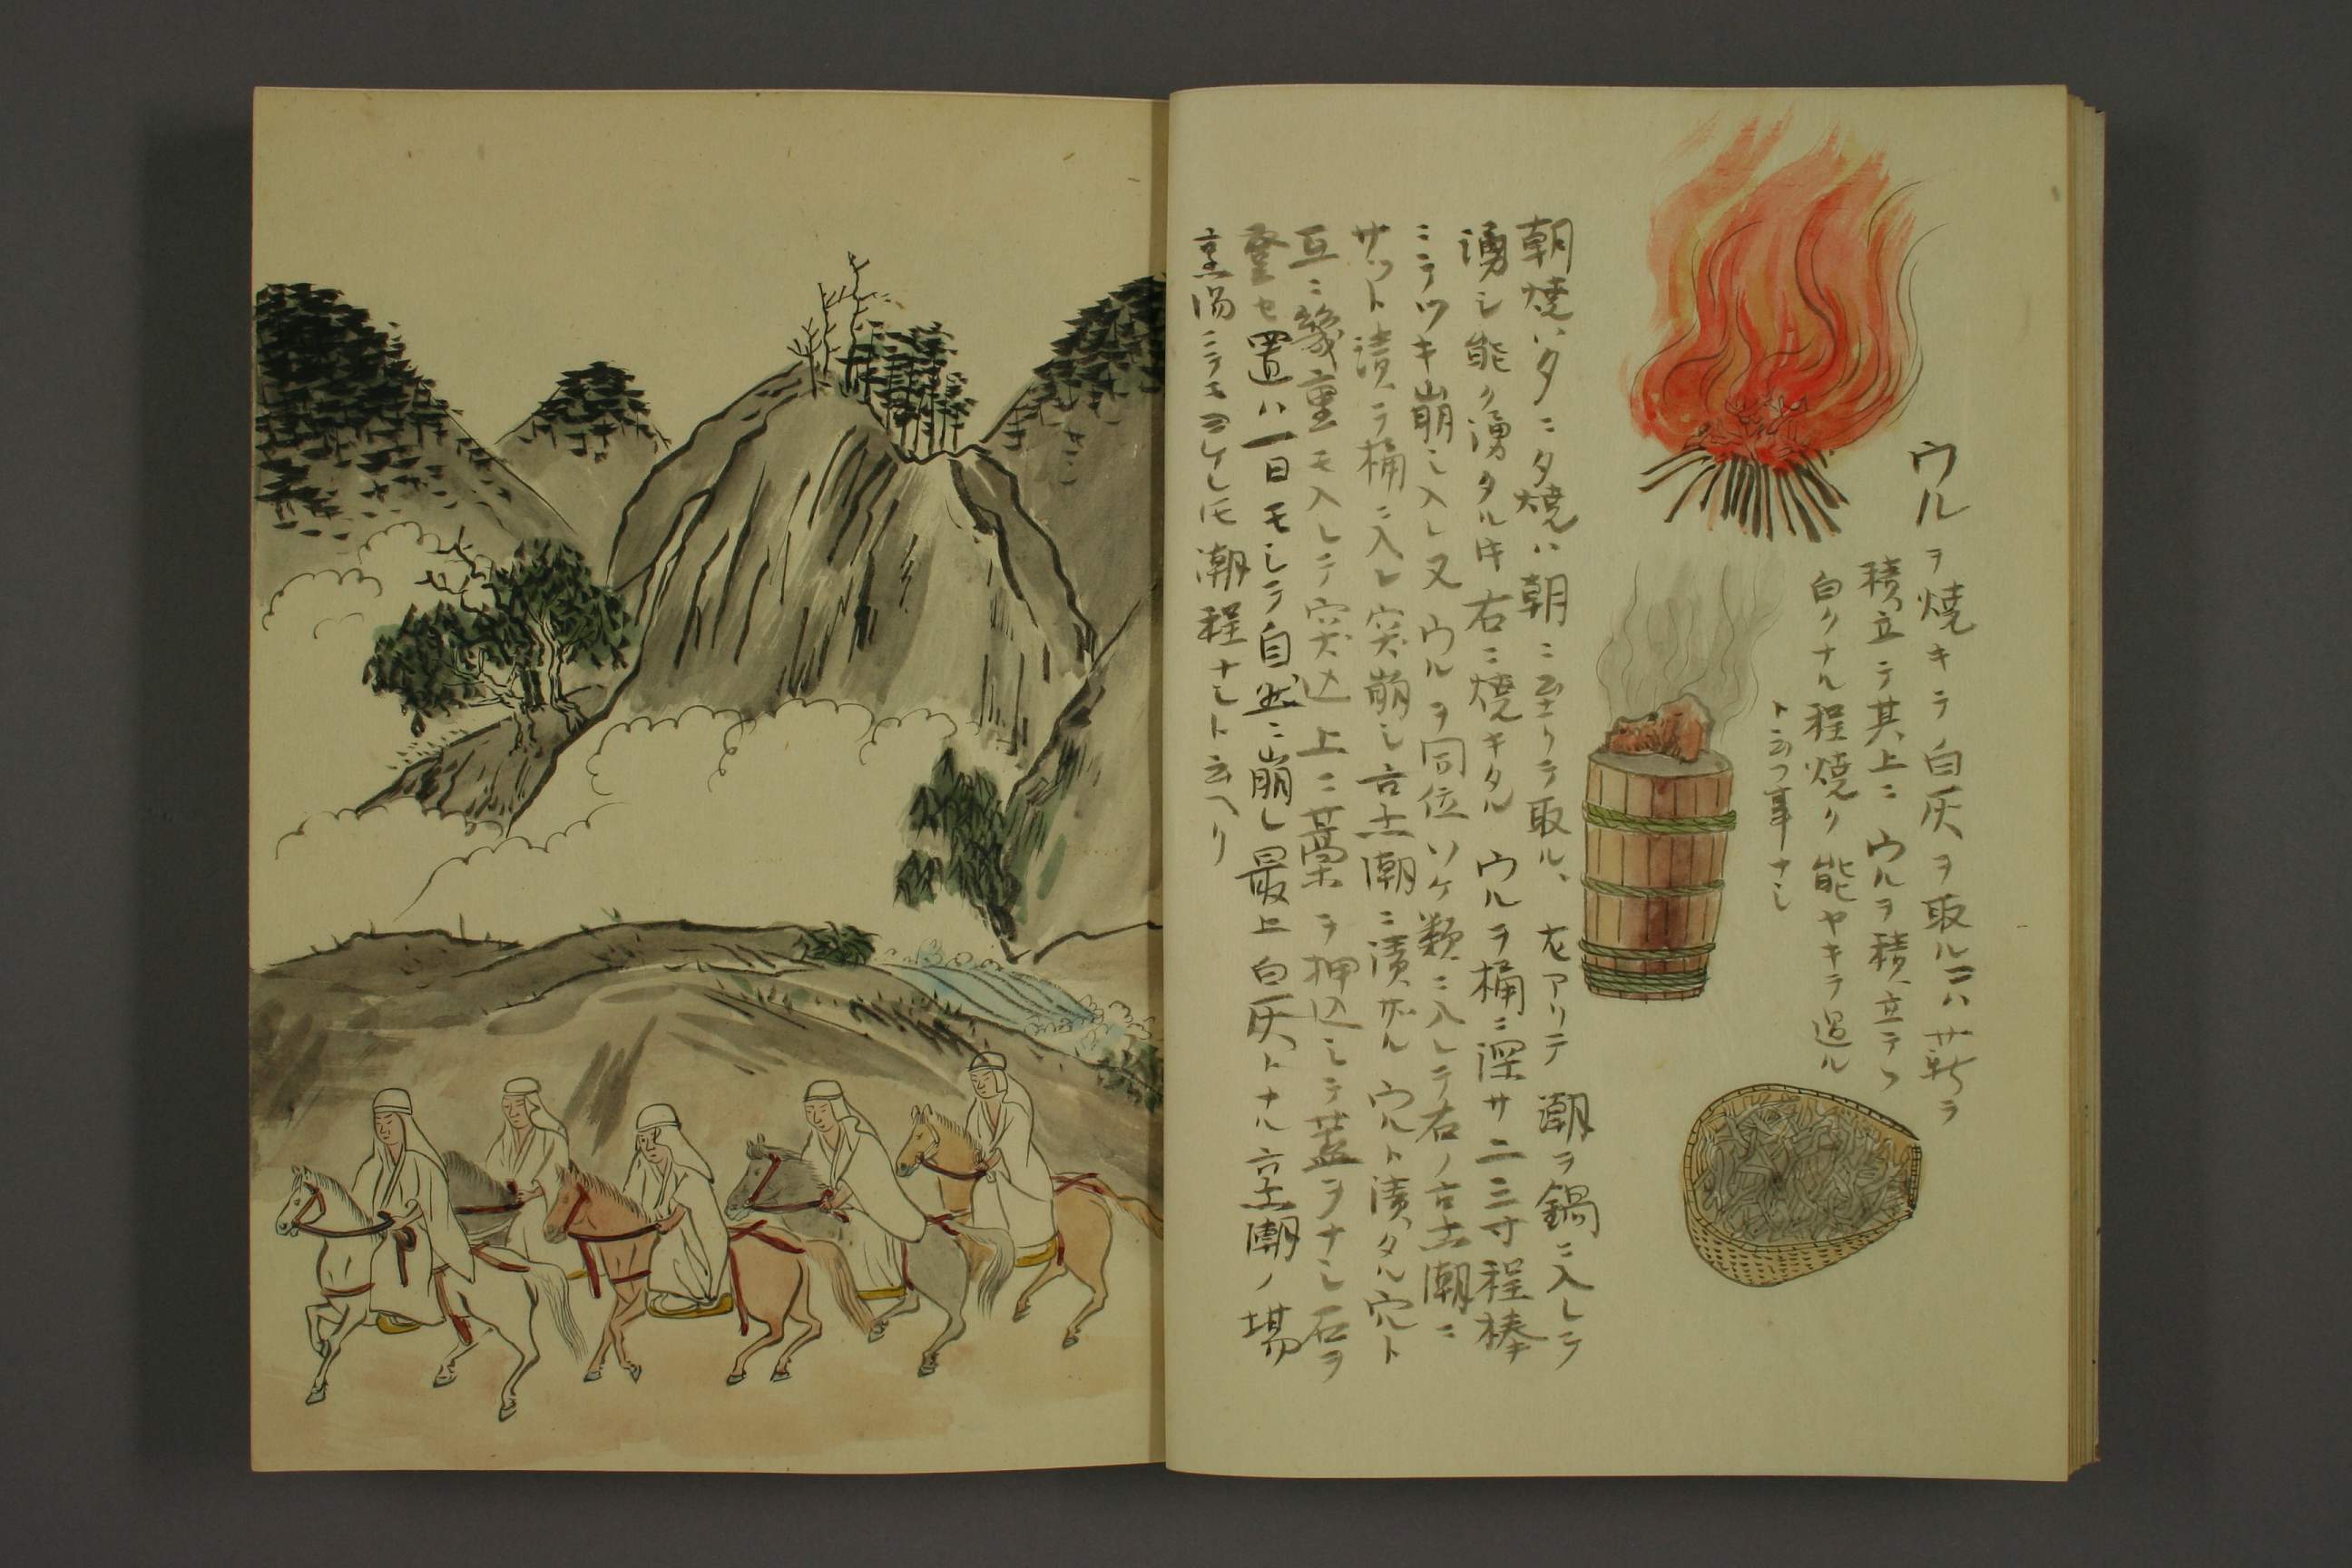 ウルヲ焼キテ白灰ヲ取ルニハ薪ヲ
積立テ其上ニウルヲ積立テヽ
白クナル程焼ク能ヤキテ過ル
ト云フ事ナシ
朝焼ハ夕ニ夕焼ハ朝ニ至リテ取ル、尤アリテ潮ヲ鍋ニ入レテ
湧シ能ク湧タル時右ニ焼キタルウルヲ桶ニ深サ二三寸程棒
ニテツキ崩シ入レ又ウルヲ同位ソケ類ニ入レテ右ノ烹潮ニ
サット漬テ桶ニ入レ突崩シ烹潮ニ漬サルウルト漬タル穴ト
互ニ幾重モ入レテ突込上ニ藁ヲ押込シテ蓋ヲナシ石ヲ
登セ置ハ一日モシテ自然ニ崩レ最上白灰トナル烹潮ノ場
烹湯ニテモヨケレ𪜈潮程ナシト云ヘリ